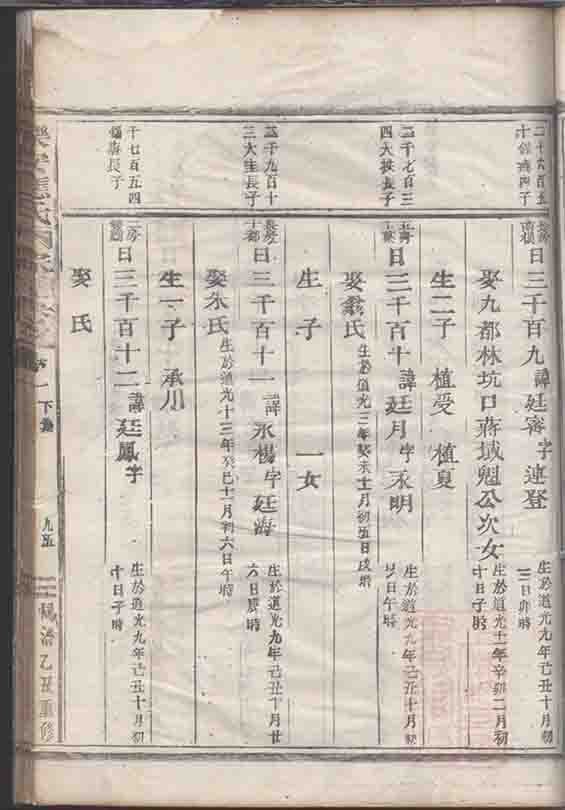 三千百九 諱廷審 字連登
生於道光九年己丑十月初
三日卯時
娶九都林坑口蔣域魁公次女
生於道光十一年辛卯二月初
十日子時
生二子 植受 植夏
二千七百三
四大 長子
三千百十 諱廷月 字永明
生於道光九年己丑十月初
日午時
娶 氏
生於道光三年癸未十一月初五日戌時
生 子 一女
二千九百十
三大生長子
三千百十一 諱永楊 字廷海
生於道光九年己丑十月廿
六日辰時
娶朱氏
生於道光十三年癸巳十一月初六日午時
生一子 承川
千七百五四
壽長子
三千百十二 諱廷鳳 字
生於道光九年己丑十月初
十日子時
娶 氏
下
九五
乙丑重修